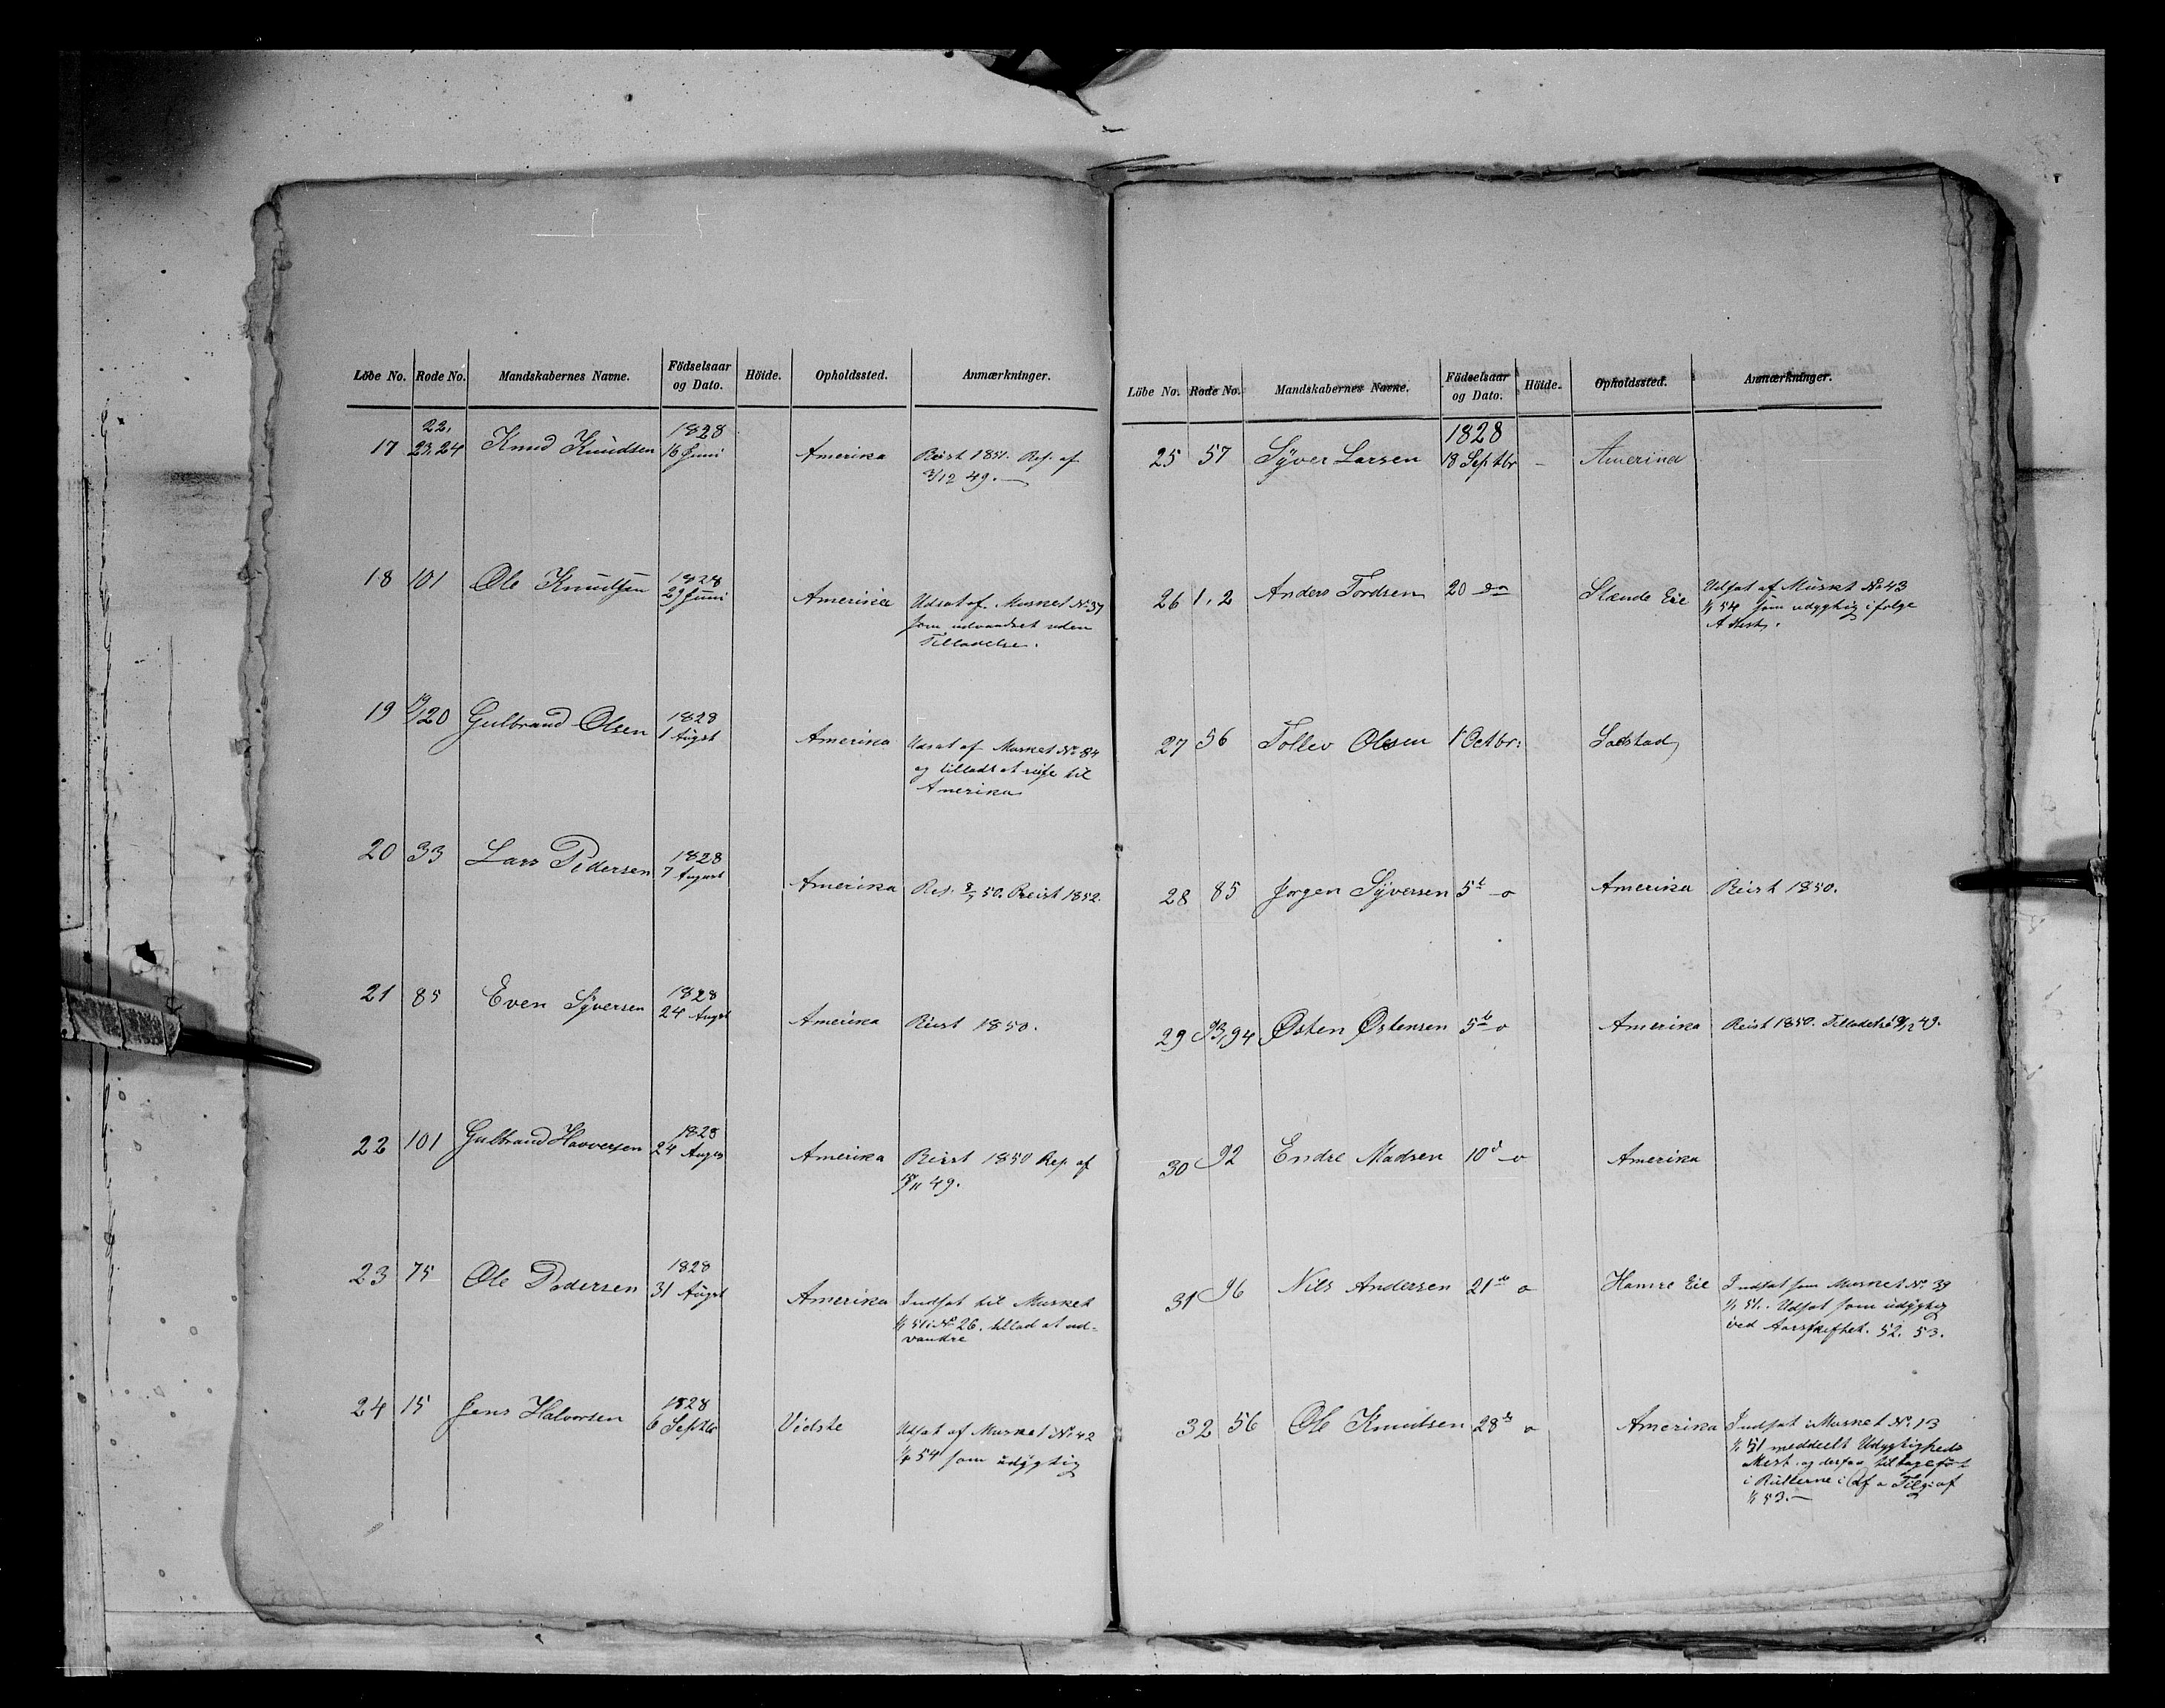 Löbe No. Rode No. Mandskabernes Navne. Födselsaar og Dato. Höide. Opholdssted. Anmærkninger.
17 22, 23, 24 Knud Knudsen 1828 16 Juni Amerika Reist 1851. Rej. af
3/12 49. —
18 101 Ole Knudsen 1828 29 Juni Amerika Udsat af Musket No 37
som udvandret uden
Tilladelse.
19 19/20 Gulbrand Olsen 1828 1 Augst Amerika Udsat af Musket No 84
og tilladt at reise til
Amerika
20 33 Lars Pedersen 1828 7 August Amerika Rej. 50. Reist 1852.
21 85 Even Syversen 1828 24 Augst Amerika Reist 1850.
22 101 Gulbrand Havversen 1828 24 Augst Amerika Reist 1850 Rej af
49.
23 75 Ole Pedersen 1828 31 Augst Amerika Indsat til Musket
1/1 51 i No 26. tillad at ud-
vandre
24 15 Jens Halvorsen 1828 6 Septbr Vidste Udsat af Musket No 42
54 som udygtig
Löbe No. Rode No. Mandskabernes Navne. Födselsaar og Dato. Höide. Opholdssted. Anmærkninger.
25 57 Syver Larsen 1828 18 Septbr — Amerika
26 1, 2 Anders Tordsen 20 do Slænde Eie Udsat af Musket No 43
1/1 54 som udygtig ifølge
Attest.
27 56 Tollev Olsen 1 Octbr: Lodstad
28 85 Jørgen Syversen 5t o Amerika Reist 1850.
29 93, 94 Østen Østensen 5t o Amerika Reist 1850. 49.
30 92 Endre Madsen 10d o Amerika
31 96 Nils Andersen 21 o Hamre Eie Indsat som Musket No. 39
1/1 51. Udsat som udygtig
ved Aarsskiftet. 52. 53.
32 56 Ole Knudsen 28 o Amerika Indsat i Musket No. 13
1/1 51 meddelt Udygtigheds
Attest og derfor tilbageført
i Rullerne i af
1/1 53. —